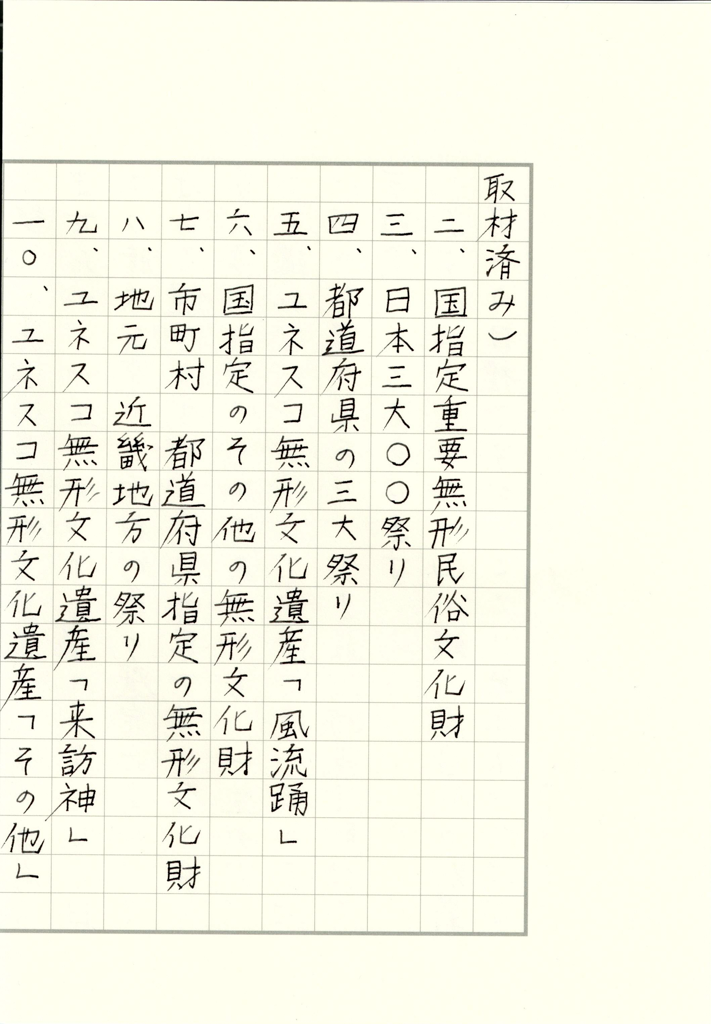 取材済み）
二、国指定重要無形民俗文化財
三、日本三大〇〇祭り
四、都道府県の三大祭り
五、ユネスコ無形文化遺産「風流踊」
六、国指定のその他の無形文化財
七、市町村　都道府県指定の無形文化財
八、地元　近畿地方の祭り
九、ユネスコ無形文化遺産「来訪神」
一〇、ユネスコ無形文化遺産「その他」